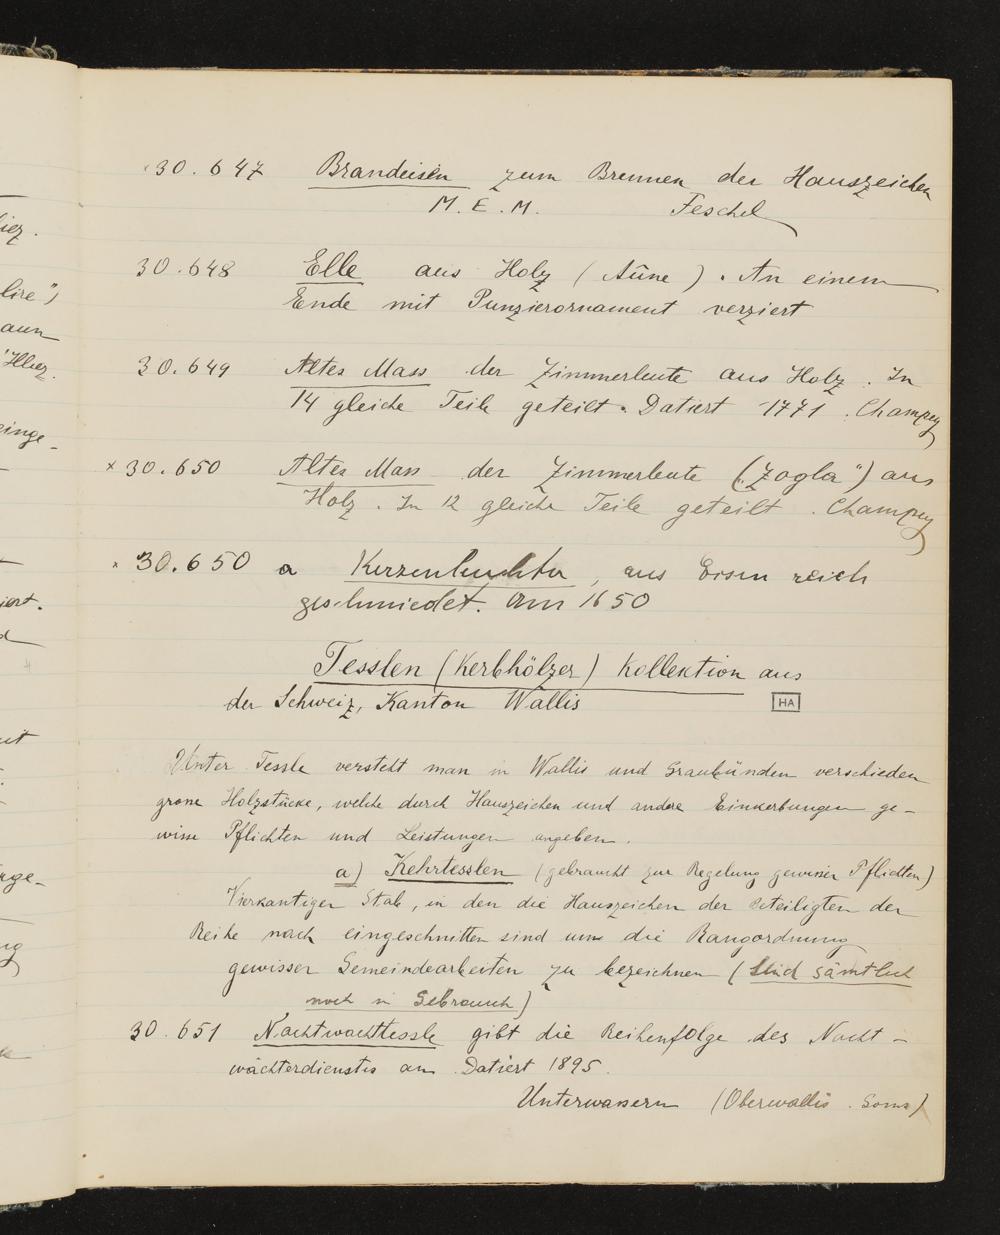 × 30.647 Brandeisen zum Brennen der Hauszeichen
M.E.M. Feschel
30.648 Elle aus Holz (Aûne). An einem
Ende mit Punzierornament verziert
30.649 Altes Mass der Zimmerleute aus Holz. In
14 gleiche Teile geteilt. Datiert 1771. Champery
× 30.650 Altes Mass der Zimmerleute („Zogla") aus
Holz. In 12 gleiche Teile geteilt. Champery
× 30.650 a Kerzenleuchter, aus Eisen reich
geschmiedet. Um 1650
Tesslen (Kerbhölzer) Kollektion aus
der Schweiz, Kanton Wallis HA
Unter Tessle versteht man in Wallis und Graubünden verschieden
grosse Holzstücke, welche durch Hauszeichen und andere Einkerbungen ge-
wisse Pflichten und Leistungen angeben.
a) Kehrtesslen (gebraucht zur Regelung gewisser Pflichten)
Vierkantiger Stab, in den die Hauszeichen der Beteiligten der
Reihe nach eingeschnitten sind um die Rangordnung
gewisser Gemeindearbeiten zu bezeichnen (Sind sämtlich
noch in Gebrauch)
30.651 Nachtwachttessle gibt die Reihenfolge des Nacht-
wächterdienstes an. Datiert 1895.
Unterwassern (Oberwallis. Goms)
lire")
aun
'Illiez.
einge-